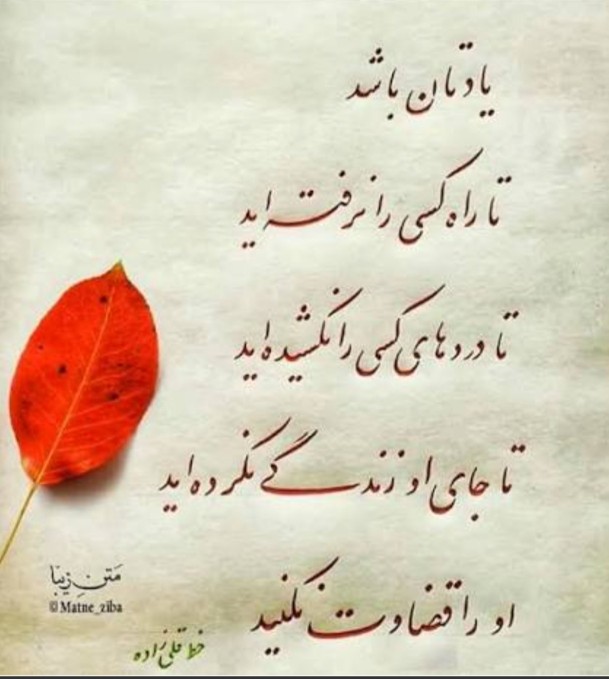 یادتان باشد
تا راه کسی را نرفته اید
تا دردهای کسی را نکشیده اید
تا جای او زندگی نکرده اید
او را قضاوت نکنید
متن زیبا
©Matne_ziba
خط قلی زاده